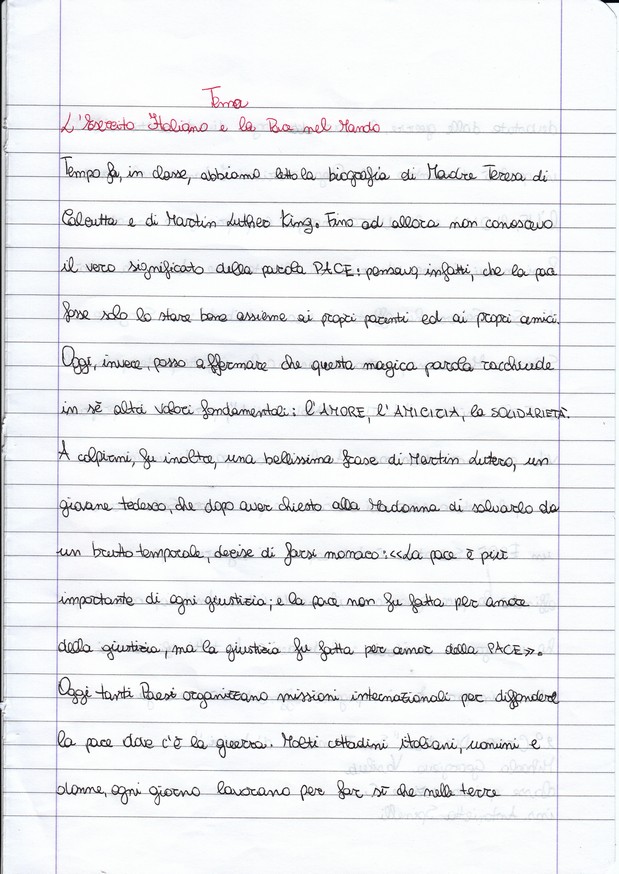 Tema
L'Esercito Italiano e la Pace nel Mondo
Tempo fa, in classe, abbiamo letto la biografia di Madre Teresa di
Calcutta e di Martin Luther King. Fino ad allora non conoscevo
il vero significato della parola PACE: pensavo, infatti, che la pace
fosse solo lo stare bene assieme ai propri parenti ed ai propri amici.
Oggi, invece, posso affermare che questa magica parola racchiude
in sè altri valori fondamentali: l'AMORE, l'AMICIZIA, la SOLIDARIETÀ.
A colpirmi, fu inoltre, una bellissima frase di Martin Lutero, un
giovane tedesco, che dopo aver chiesto alla Madonna di salvarlo da
un brutto temporale, decise di farsi monaco: <<La pace è più
importante di ogni giustizia; e la pace non fu fatta per amore
della giustizia, ma la giustizia fu fatta per amor della PACE>>.
Oggi tanti Paesi organizzano missioni internazionali per diffondere
la pace dove c'è la guerra. Molti cittadini italiani, uomini e
donne, ogni giorno lavorano per far sì che nelle terre